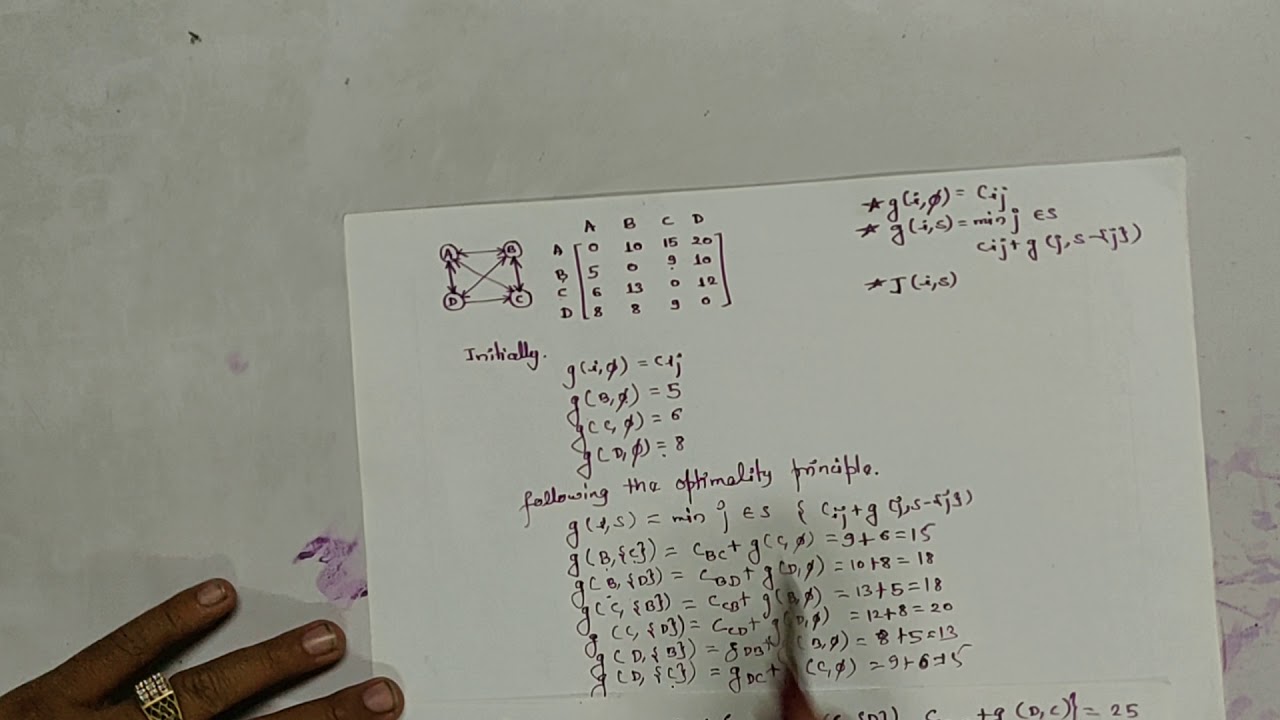 A B
D C
A B C D
A 0 10 15 20
B 5 0 9 10
C 6 13 0 12
D 8 8 9 0
* g(i,ϕ) = Cij
* g(i,s) = min j ∈ s
cij + g(j, s-{j})
* J(i,s)
Initially.
g(i,ϕ) = cij
g(B,ϕ) = 5
g(C,ϕ) = 6
g(D,ϕ) = 8
following the optimality principle.
g(i,s) = min j ∈ s { Cij + g(j,s-{j})
g(B,{C}) = CBC + g(C,ϕ) = 9+6=15
g(B,{D}) = CBD + g(D,ϕ) = 10+8=18
g(C,{B}) = CCB + g(B,ϕ) = 13+5=18
g(C,{D}) = CCD + g(D,ϕ) = 12+8=20
g(D,{B}) = gDB + (B,ϕ) = 8+5=13
g(D,{C}) = gDC + (C,ϕ) = 9+6=15
+g(D,C)} = 25